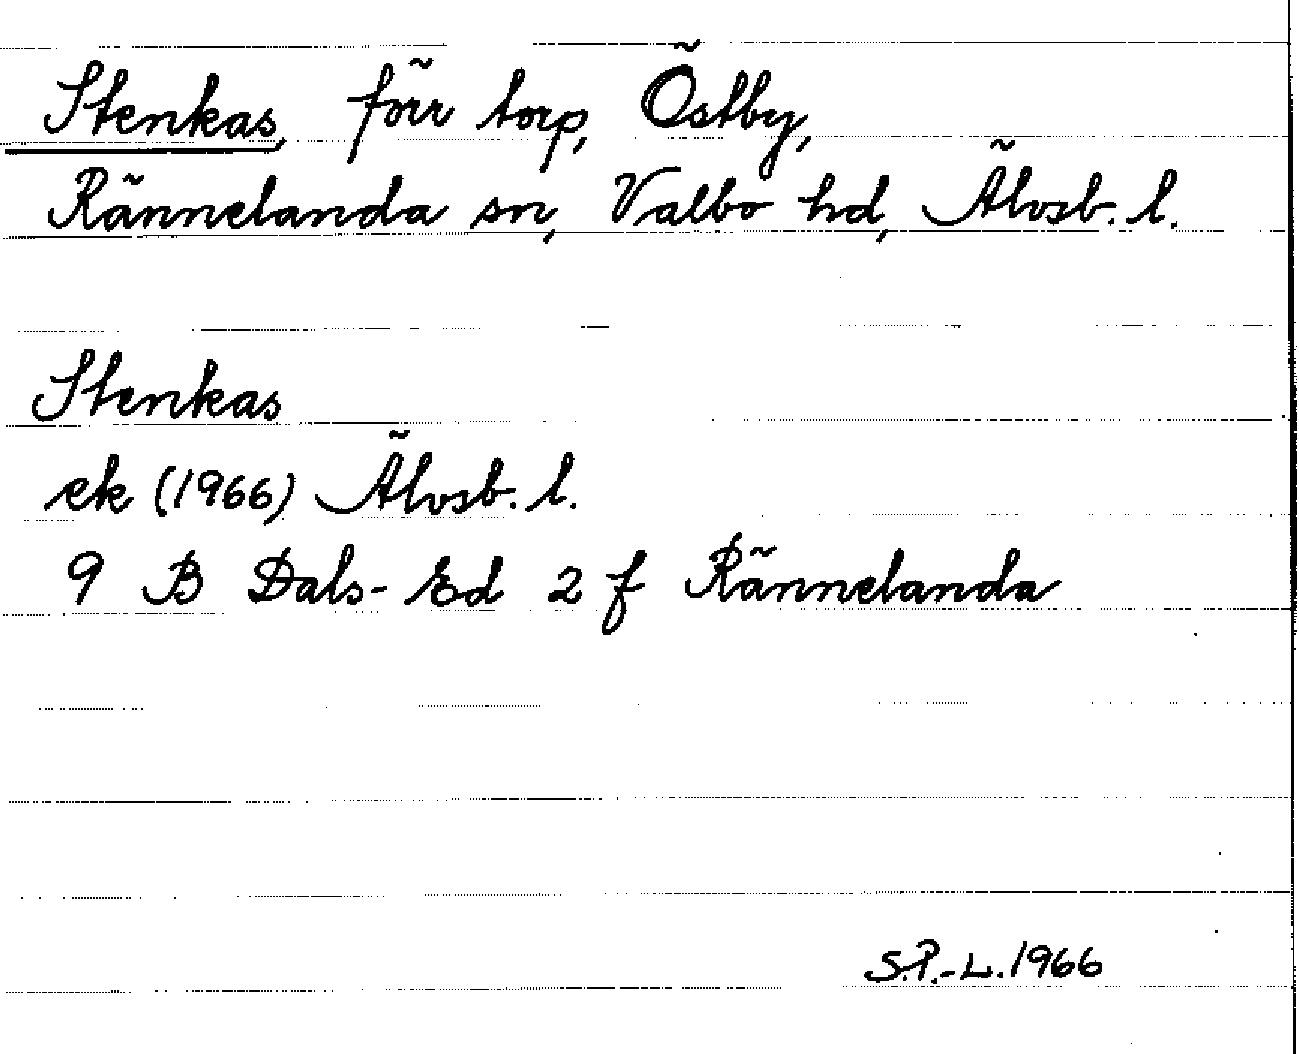 Stenkas, förr torp, Östby,
Rännelanda sn, Valbo hd, Älvsb. l.
Stenkas
ek (1966) Älvsb. l.
9 B Dals-Ed 2 f Rännelanda
S.P.-L. 1966